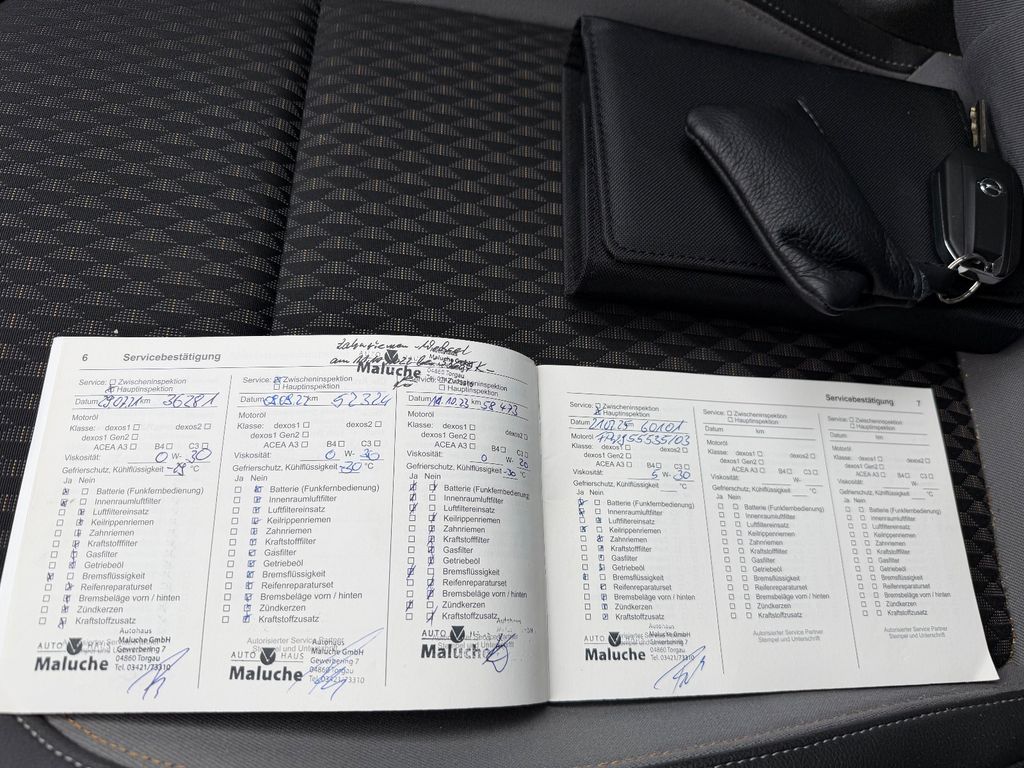 6 Servicebestätigung
Maluche
04860 Torgau
Service: Zwischeninspektion
Hauptinspektion
Datum 29.07.21 km 36281
Motoröl
Klasse: dexos1 dexos2
dexos1 Gen2
ACEA A3 B4 C3
Viskosität: 0 W- 30
Gefrierschutz, Kühlflüssigkeit °C
Ja Nein
Batterie (Funkfernbedienung)
Innenraumluftfilter
Luftfiltereinsatz
Keilrippenriemen
Zahnriemen
Kraftstofffilter
Gasfilter
Getriebeöl
Bremsflüssigkeit
Reifenreparaturset
Bremsbeläge vorn / hinten
Zündkerzen
Kraftstoffzusatz
AUTO HAUS
Maluche
Autohaus
Maluche GmbH
Gewerbering 7
04860 Torgau
Tel. 03421/73310
Service: Zwischeninspektion
Hauptinspektion
Datum km 52324
Motoröl
Klasse: dexos1 dexos2
dexos1 Gen2
ACEA A3 B4 C3
Viskosität: 0 W- 30
Gefrierschutz, Kühlflüssigkeit -30 °C
Ja Nein
Batterie (Funkfernbedienung)
Innenraumluftfilter
Luftfiltereinsatz
Keilrippenriemen
Zahnriemen
Kraftstofffilter
Gasfilter
Getriebeöl
Bremsflüssigkeit
Reifenreparaturset
Bremsbeläge vorn / hinten
Zündkerzen
Kraftstoffzusatz
Autorisierter Service Partner
Stempel und Unterschrift
AUTO HAUS
Maluche
Maluche GmbH
Gewerbering 7
04860 Torgau
Tel. 03421/73310
Service: Zwischeninspektion
Hauptinspektion
Datum 10.23 km 58473
Motoröl
Klasse: dexos1 dexos2
dexos1 Gen2
ACEA A3 B4 C3
Viskosität: 0 W- 30
Gefrierschutz, Kühlflüssigkeit -30 °C
Ja Nein
Batterie (Funkfernbedienung)
Innenraumluftfilter
Luftfiltereinsatz
Keilrippenriemen
Zahnriemen
Kraftstofffilter
Gasfilter
Getriebeöl
Bremsflüssigkeit
Reifenreparaturset
Bremsbeläge vorn / hinten
Zündkerzen
Kraftstoffzusatz
AUTO HAUS
Maluche
Servicebestätigung 7
Service: Zwischeninspektion
Hauptinspektion
Datum km 60101
Motoröl
Klasse: dexos1 dexos2
dexos1 Gen2
ACEA A3 B4 C3
Viskosität: 5 W- 30
Gefrierschutz, Kühlflüssigkeit °C
Ja Nein
Batterie (Funkfernbedienung)
Innenraumluftfilter
Luftfiltereinsatz
Keilrippenriemen
Zahnriemen
Kraftstofffilter
Gasfilter
Getriebeöl
Bremsflüssigkeit
Reifenreparaturset
Bremsbeläge vorn / hinten
Zündkerzen
Kraftstoffzusatz
AUTO HAUS
Maluche
Autohaus
Maluche GmbH
Gewerbering 7
04860 Torgau
Tel. 03421/73310
Service: Zwischeninspektion
Hauptinspektion
Datum km
Motoröl
Klasse: dexos1 dexos2
dexos1 Gen2
ACEA A3 B4 C3
Viskosität: W-
Gefrierschutz, Kühlflüssigkeit °C
Ja Nein
Batterie (Funkfernbedienung)
Innenraumluftfilter
Luftfiltereinsatz
Keilrippenriemen
Zahnriemen
Kraftstofffilter
Gasfilter
Getriebeöl
Bremsflüssigkeit
Reifenreparaturset
Bremsbeläge vorn / hinten
Zündkerzen
Kraftstoffzusatz
Autorisierter Service Partner
Stempel und Unterschrift
Service: Zwischeninspektion
Hauptinspektion
Datum km
Motoröl
Klasse: dexos1 dexos2
dexos1 Gen2
ACEA A3 B4 C3
Viskosität: W-
Gefrierschutz, Kühlflüssigkeit °C
Ja Nein
Batterie (Funkfernbedienung)
Innenraumluftfilter
Luftfiltereinsatz
Keilrippenriemen
Zahnriemen
Kraftstofffilter
Gasfilter
Getriebeöl
Bremsflüssigkeit
Reifenreparaturset
Bremsbeläge vorn / hinten
Zündkerzen
Kraftstoffzusatz
Autorisierter Service Partner
Stempel und Unterschrift